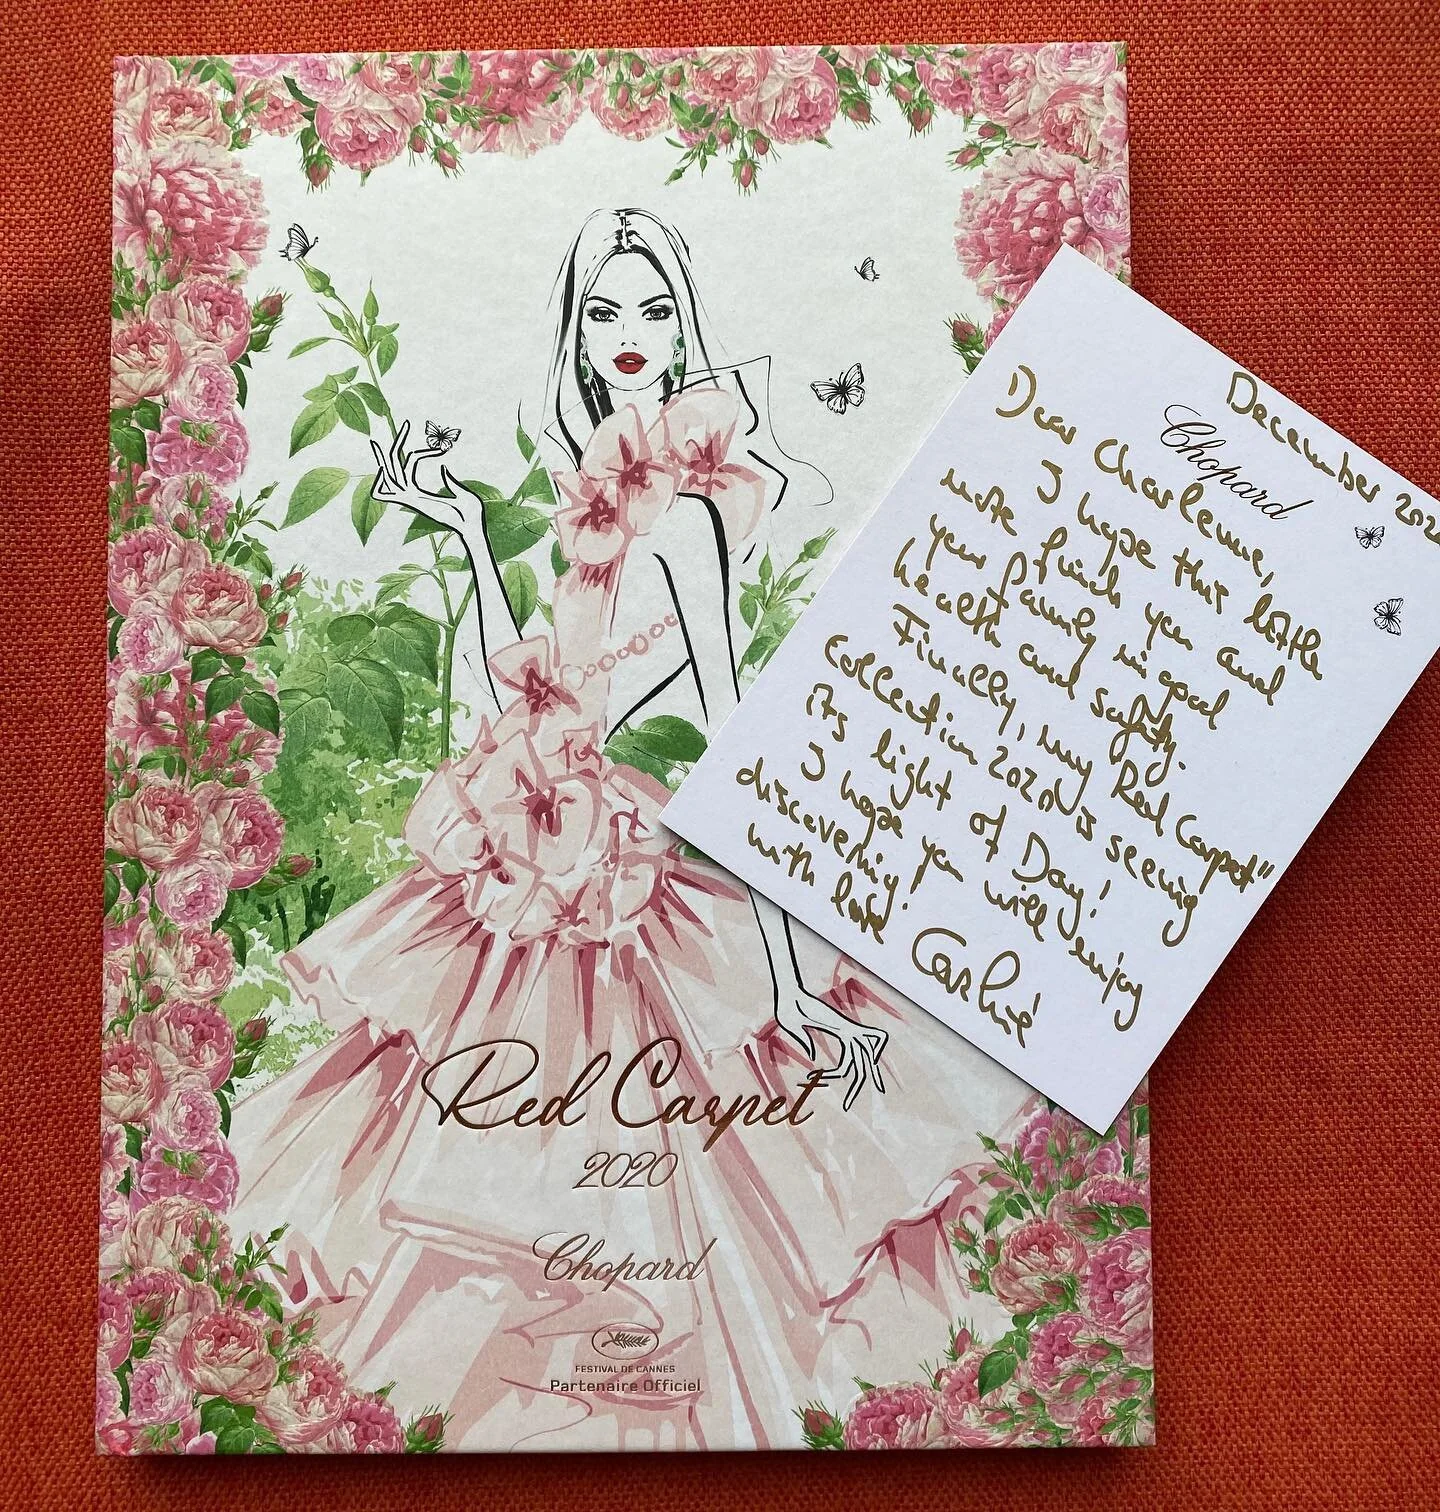 Red Carpet
2020
Chopard
FESTIVAL DE CANNES
Partenaire Officiel
December 202
Chopard
Dear Charlene,
I hope this little
note finds you and
your family in good
health and safety.
Finally, my Red Carpet"
Collection 2020 is seeing
its light of Day!
I hope you will enjoy
discovering!
with love